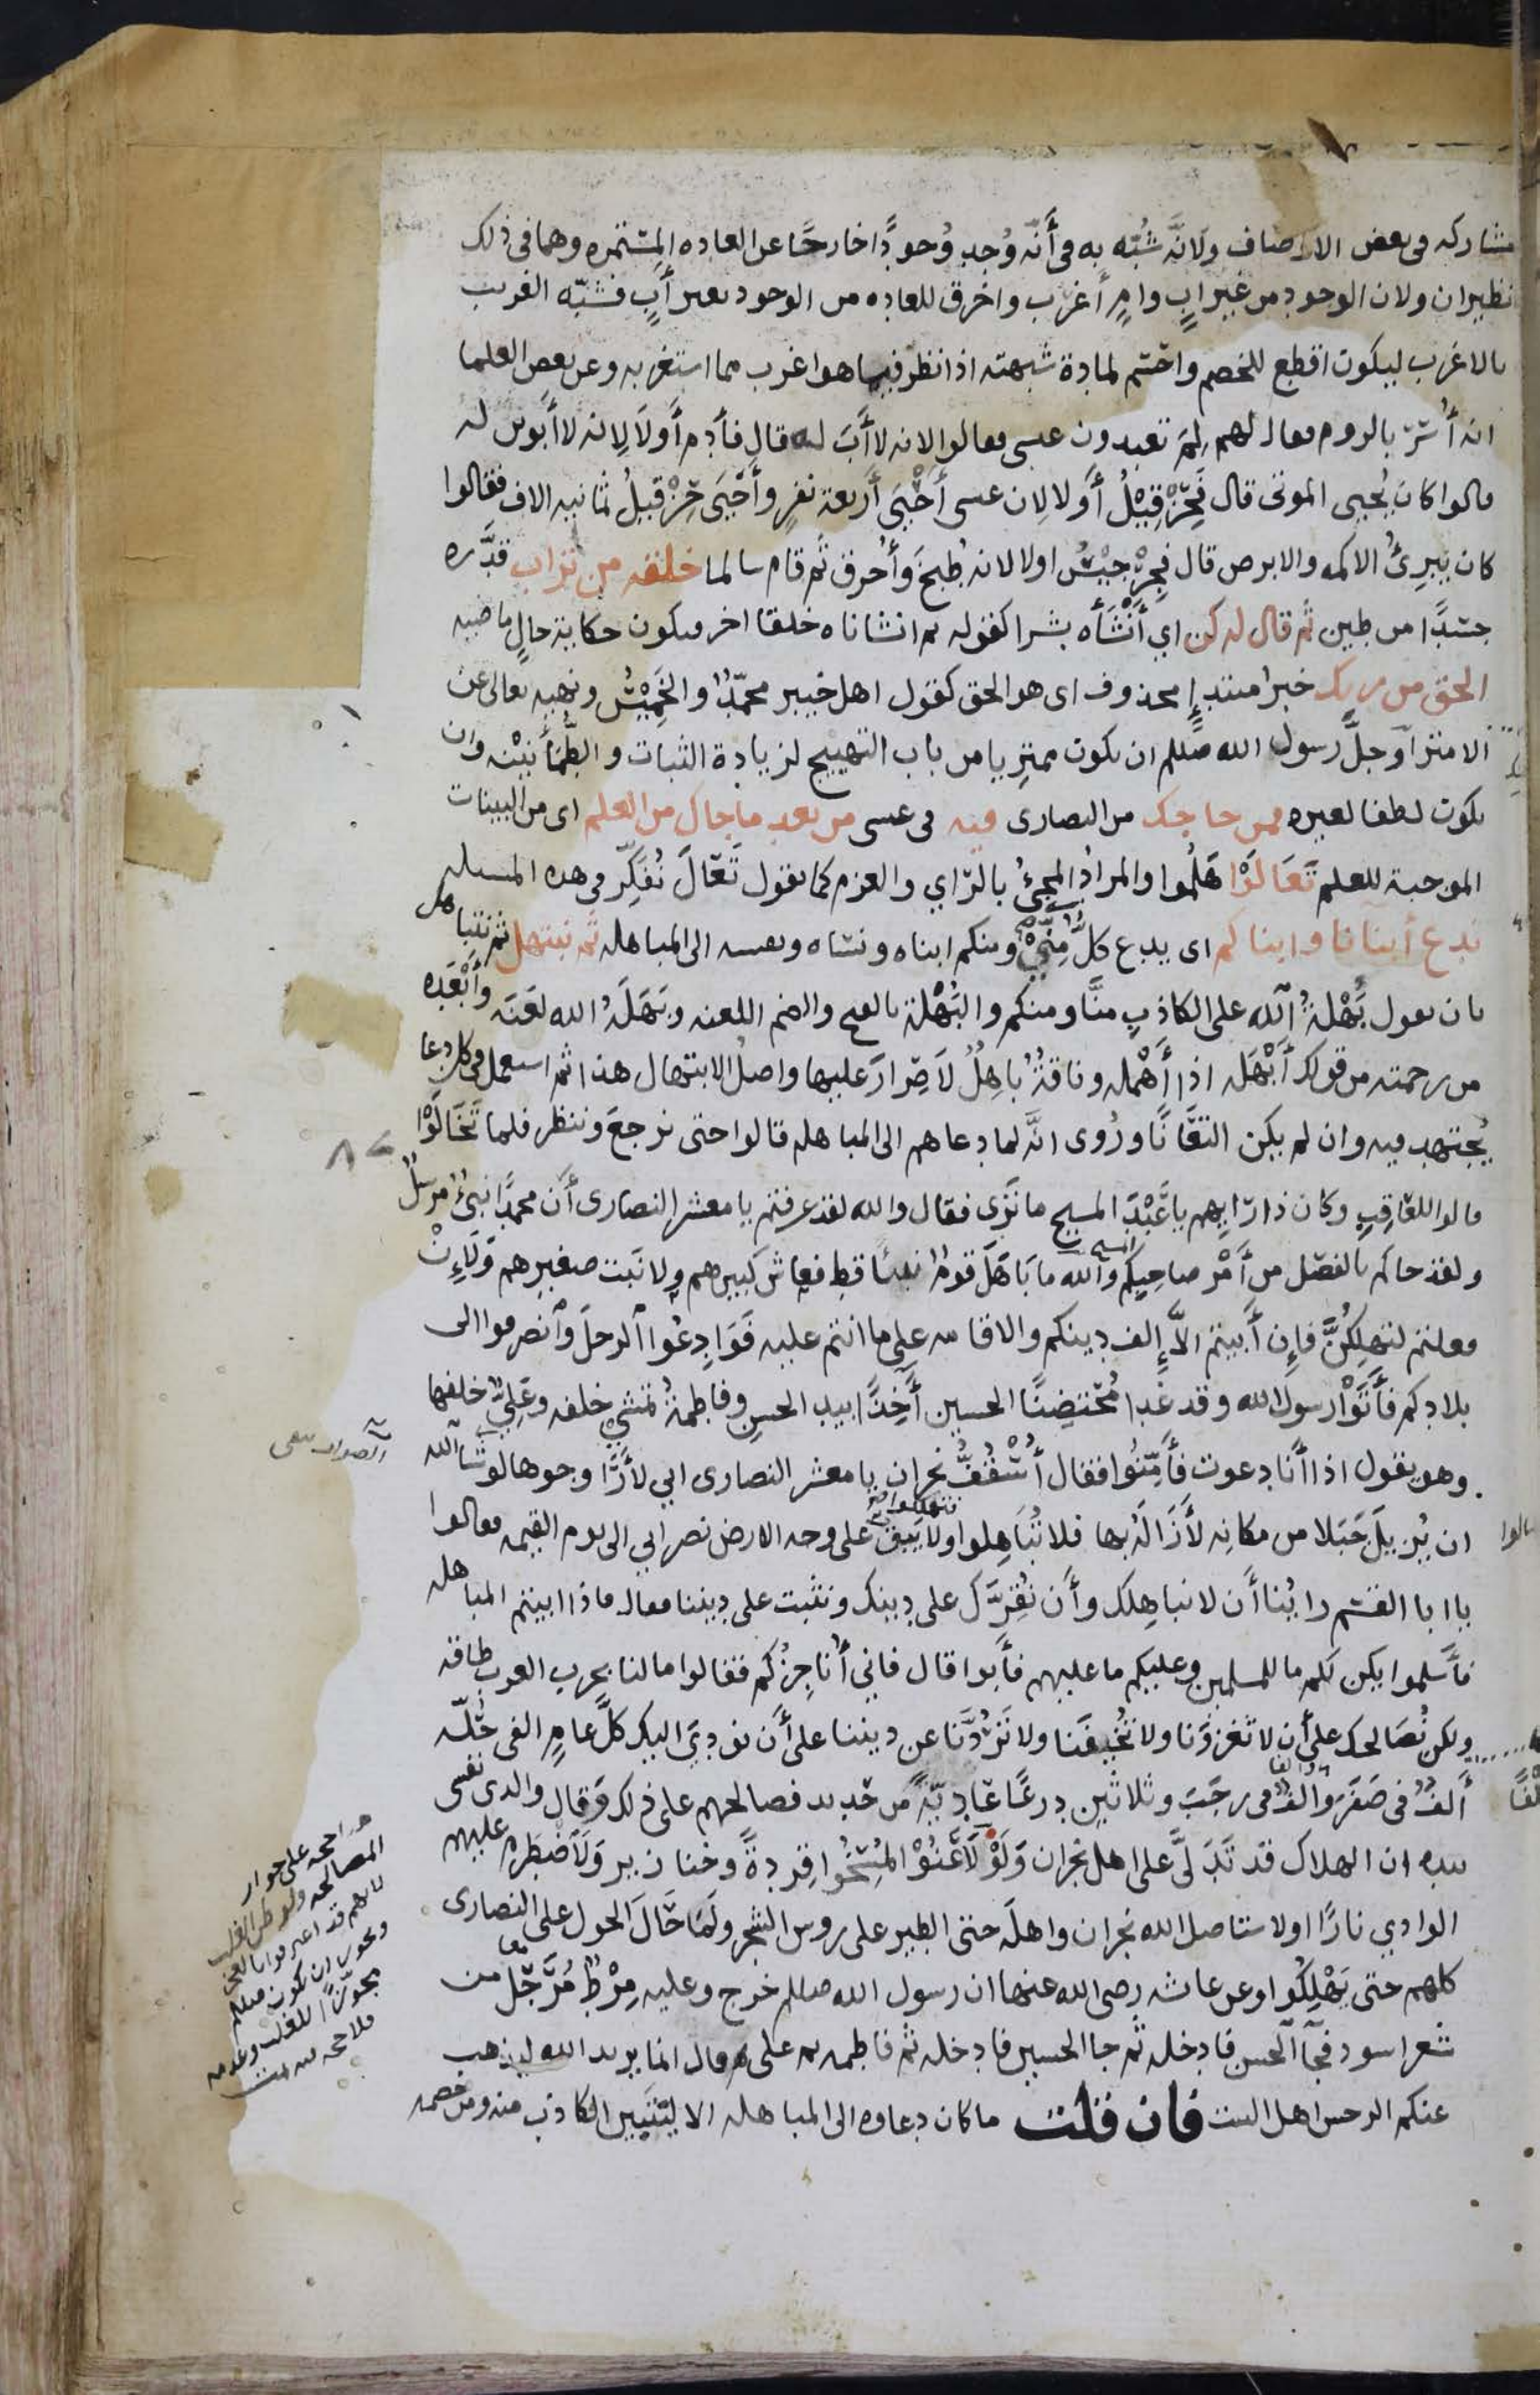 مشاركه في بعض الاوصاف ولأنّه شُبّه به في أنّه وُجد وُجودًا خارجًا عن العاده المستمره وهما في ذلك
نظيران ولان الوجود من غير ابٍ وامٍ أغرب واخرق للعاده من الوجود بغير أبٍ فشبّه الغريب
بالاغرب ليكون اقطع للخصم واحسم لمادة شبهته اذا نظر فيما هو اغرب مما استغربه وعن بعض العلما
انه أُسر بالروم فقال لهم لِمَ تعبدون عيسى فقالوا لانه لا أبَ له قال فآدم أَولَا لِانه لا أبوين له
قالوا كان يُحيى الموتى قال فَحِزْقِيْلُ أولا لِان عيسى أَحْيَى أربعة نفرٍ وأَحْيَى حِزْقيلُ ثمانيه الاف فقالوا
كان يبرئُ الاكمه والابرص قال فجِرْجِيْسُ اولا لانه طُبخَ وأُحرق ثم قام سالما خلقه من تراب قدَّره
جسَدًا من طين ثم قال له كن اي أَنْشَأَه بشرا كقوله ثم انشاناه خلقا اخر فيكون حكاية حالٍ ماضيه
الحق من ربك خبرُ مبتدإٍ محذوف اى هو الحق كقول اهل خيبر محمّدٌ والخَمِيْسُ ونهيه تعالى عن
الامترآ وجلَّ رسول الله صللم ان يكون ممترِيا من باب التهييج لزيادة الثبات والطُّمَأْنِيْنه وان
يكون لطفا لغيره فمن حاجك من النصارى فيه في عيسى من بعد ما جاك من العلم اى من البينات
الموجبة للعلم تَعَالَوْا هَلُمُوا والمرادُ المجيُ بالرَّاي والعزم كما تقول تَعَالَ نُفَكِّر في هذه المسله
ندع أبنآنا وابناكم اى يدع كلٌّ مِنِّيْ ومنكم ابناه ونساه ونفسه الى المباهله ثم نبتهل ثم نتباهل
بان نقول بَهْلَةُ الله على الكاذبِ منَّا ومنكم والبَُهْلَة بالفتح والضم اللعنه وبَهَلَهُ الله لعَنَه وأَبْعَده
من رحمته من قولك أَبْهَله اذا أَهْمله وناقةٌ بَاهِلٌ لَا صِرَارَ عليها واصلُ الابتهال هذا ثم استعمل في كل دعا
يُجتهد فيه وان لم يكن التعَانًا ورُوى انَّه لما دعاهم الى المباهله قالوا حتى نرجعَ وننظر فلما تَخَالَوْا
قالوا للعَاقِبِ وكان ذا رَايِهم يا عَبْدَ المسيح ما تَرى فقال والله لقد عرفتم يا معشر النصارى أَن محمدًا نبيٌ مرسلٌ
ولقد جاكم بالفصْل من أَمْر صاحبِكم المسيح والله ما بَاهَلَ قومٌ نبيًا قط فعاش كبيرهم ولا نَبت صغيرهم وَلَإِنْ
فعلتم لتهلِكُنَّ فإِن أبيتم إلاَّ إِلف دينكم والاقامه على ما انتم عليه فَوَادِعُوا الرجلَ وانصرفوا الى
بلادكم فأَتَوْا رسول الله وقد غَدا مُحْتضِنًا الحسين آخِذًا بيد الحسنِ وفاطمةُ تمشي خلفه وعَليٌّ خلفها
وهو يقول اذا أنا دعوت فأَمِّنُوا فقال أُسْقُفُّ نجران يا معشر النصارى اني لأرَى وجوها لو شآ الله
ان يُزيلَ جَبَلا من مكانِه لأَزَالَهُ بها فلا تُبَاهِلوا فتهلكوا ولا يَبقى على وجه الارض نصراني الى يوم القيمه فقالوا
يا ابا القسَم رايْنا أَن لا نباهِلك وأَن نُقِرَّك على دينك ونثبت على ديننا فقال فاذا ابيتم المباهله
فأَسلموا يكن لكم ما للمسلمين وعليكم ما عليهم فأبوا قال فاني أُناجِزُكم فقالوا ما لنا بحرب العرب طاقه
ولكن نُصَالحك على أن لا تَغْزُوَنا ولا تُخيفَنا ولا تَرُدَّنَا عن ديننا على أَن نودِيَ اليك كلَّ عامٍ الفي حُلّه
أَلفٌ في صَفَر وألفٌ في رجَبَ وثلاثين دِرعًا عَادِيّةً من حَديد فصالحهم على ذلك وقال والذى نفسى
بيده ان الهلاك قد تَدَلَّى على اهل نجران وَلَوْ لَاعَنُوْا لمُسِخُوا قِردةً وخنازير وَلَاضْطَرم عليهم
الوادي نارًا ولاستاصل الله نجران واهلَه حتى الطير على روس الشجر ولَمَا حَالَ الحول على النصارى
كلهم حتى يَهْلِكُوا وعن عايشه رضى الله عنها ان رسول الله صللم خرج وعليه مِرْطٌ مُرَجَّلٌ من
شعر اسود فجآ الحسن فادخله ثم جا الحسين فادخله ثم فاطمه ثم على ثم قال انما يريد الله ليذهب
عنكم الرجس اهل البيت فان قلت ما كان دعاوه الى المباهله الا ليَتبيين الكاذب منه ومن خصمه